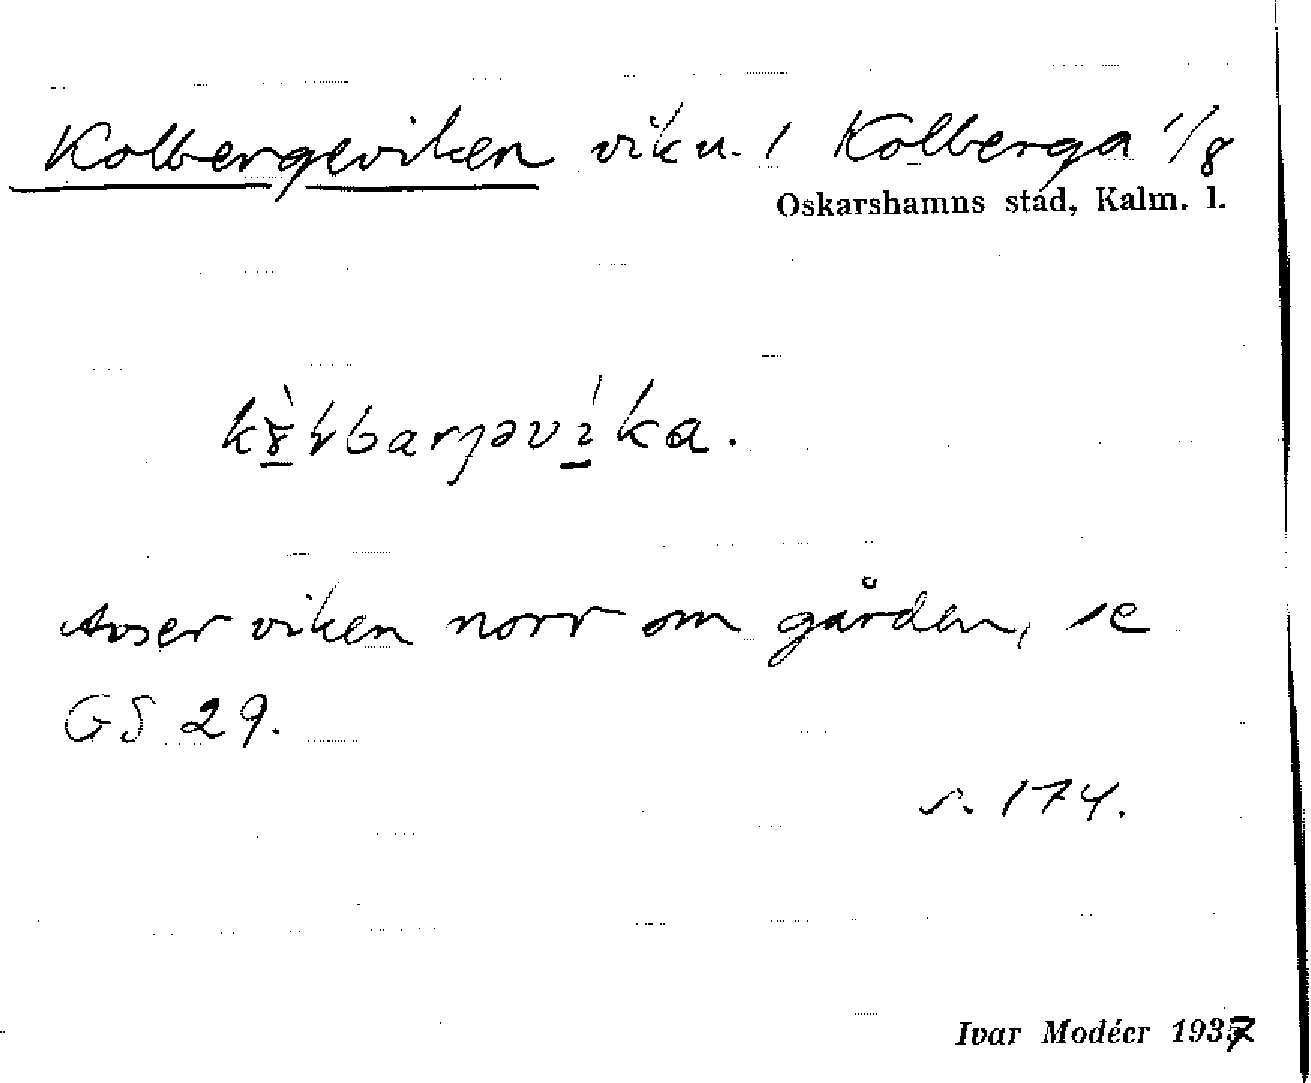 Kolbergeviken vik u. / Kolberga 1/8
Oskarshamns stad, Kalm. l.
Avser viken norr om gården, se
GS 29.
s. 174.
Ivar Modéer 1937